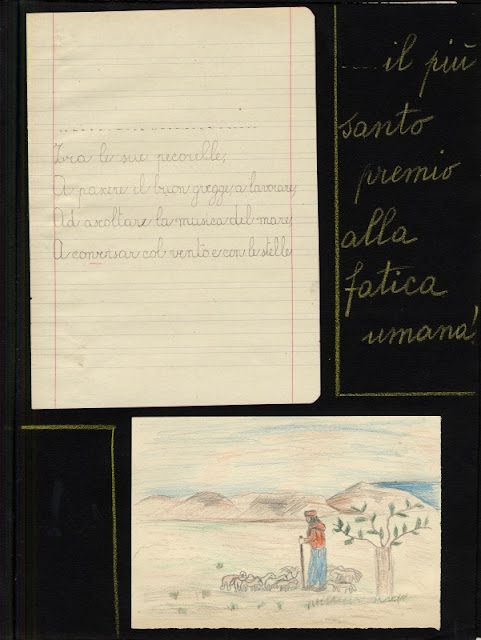 Tra le sue pecorelle;
A pascere il buon gregge, a lavorare,
Ad ascoltare la musica del mare,
A conversar col vento e con le stelle
....il più
santo
premio
alla
fatica
umana!